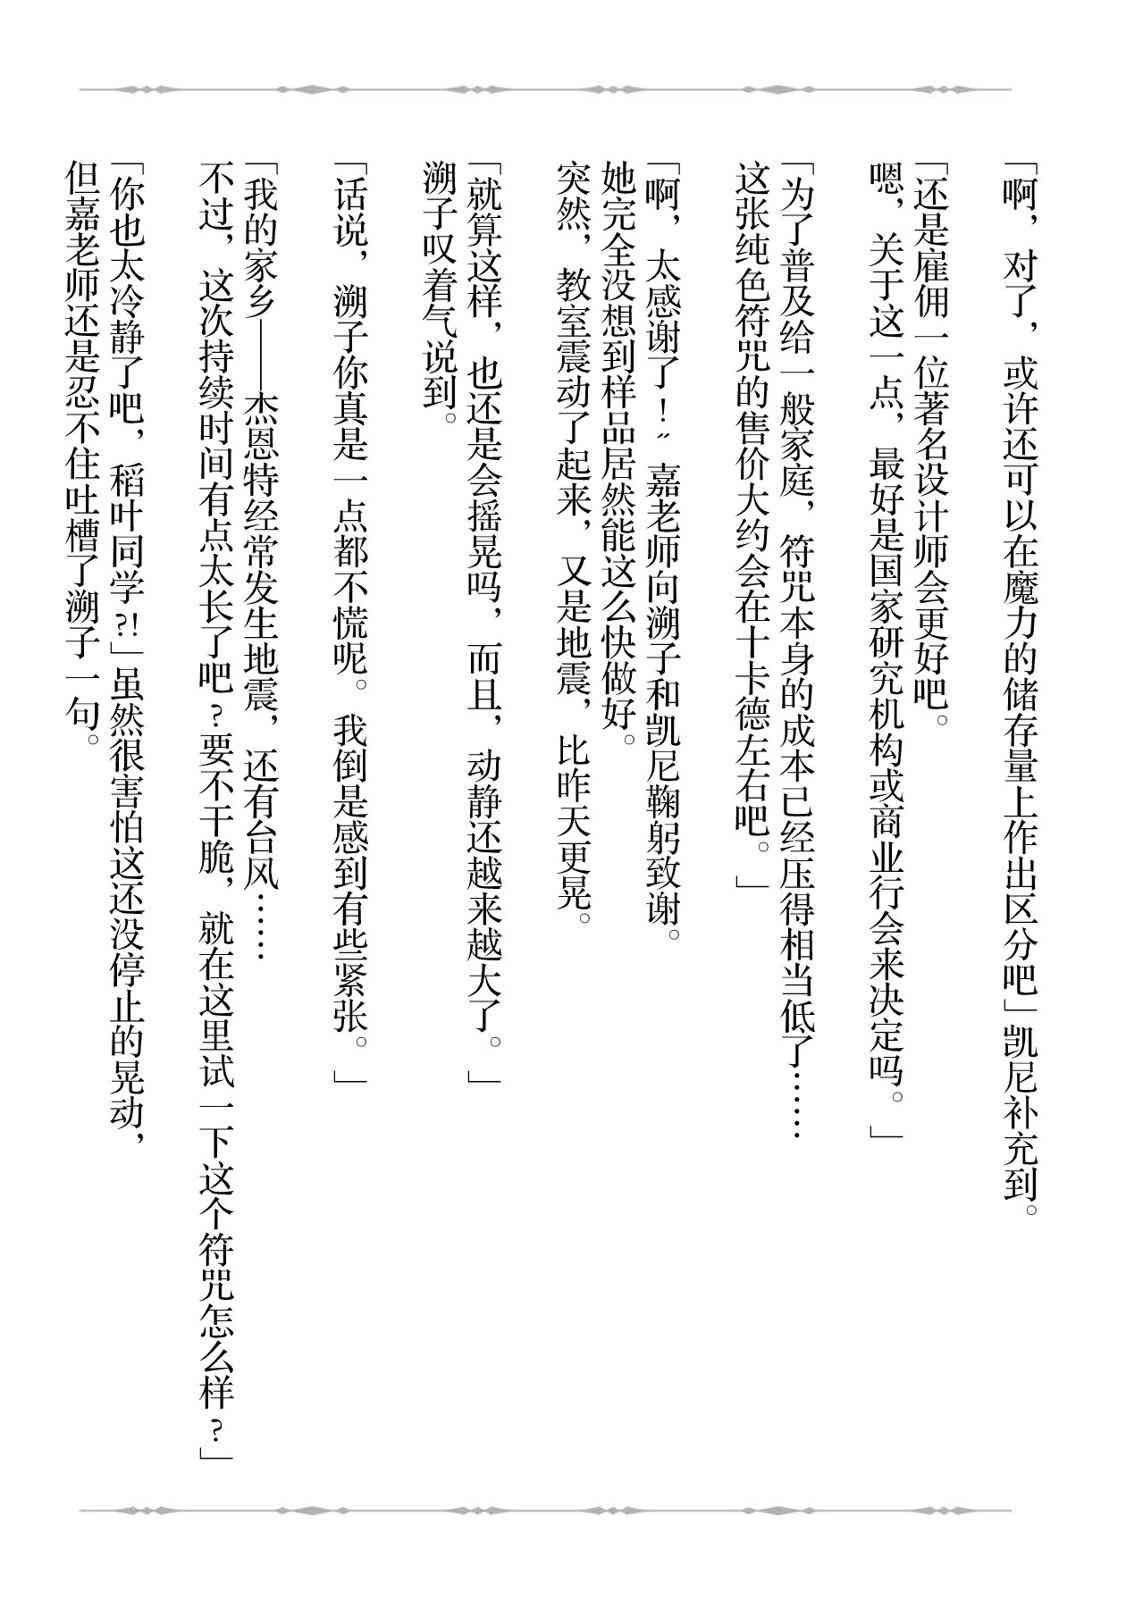 「啊，对了，或许还可以在魔力的储存量上作出区分吧」凯尼补充到。
「还是雇佣一位著名设计师会更好吧。
嗯，关于这一点，最好是国家研究机构或商业行会来决定吗。」
「为了普及给一般家庭，符咒本身的成本已经压得相当低了……
这张纯色符咒的售价大约会在十卡德左右吧。」
「啊，太感谢了！〞嘉老师向溯子和凯尼鞠躬致谢。
她完全没想到样品居然能这么快做好。
突然，教室震动了起来，又是地震，比昨天更晃。
「就算这样，也还是会摇晃吗，而且，动静还越来越大了。」
溯子叹着气说到。
「话说，溯子你真是一点都不慌呢。我倒是感到有些紧张。」
「我的家乡——杰恩特经常发生地震，还有台风……
不过，这次持续时间有点太长了吧？要不干脆，就在这里试一下这个符咒怎么样？」
「你也太冷静了吧，稻叶同学?!」虽然很害怕这还没停止的晃动，
但嘉老师还是忍不住吐槽了溯子一句。